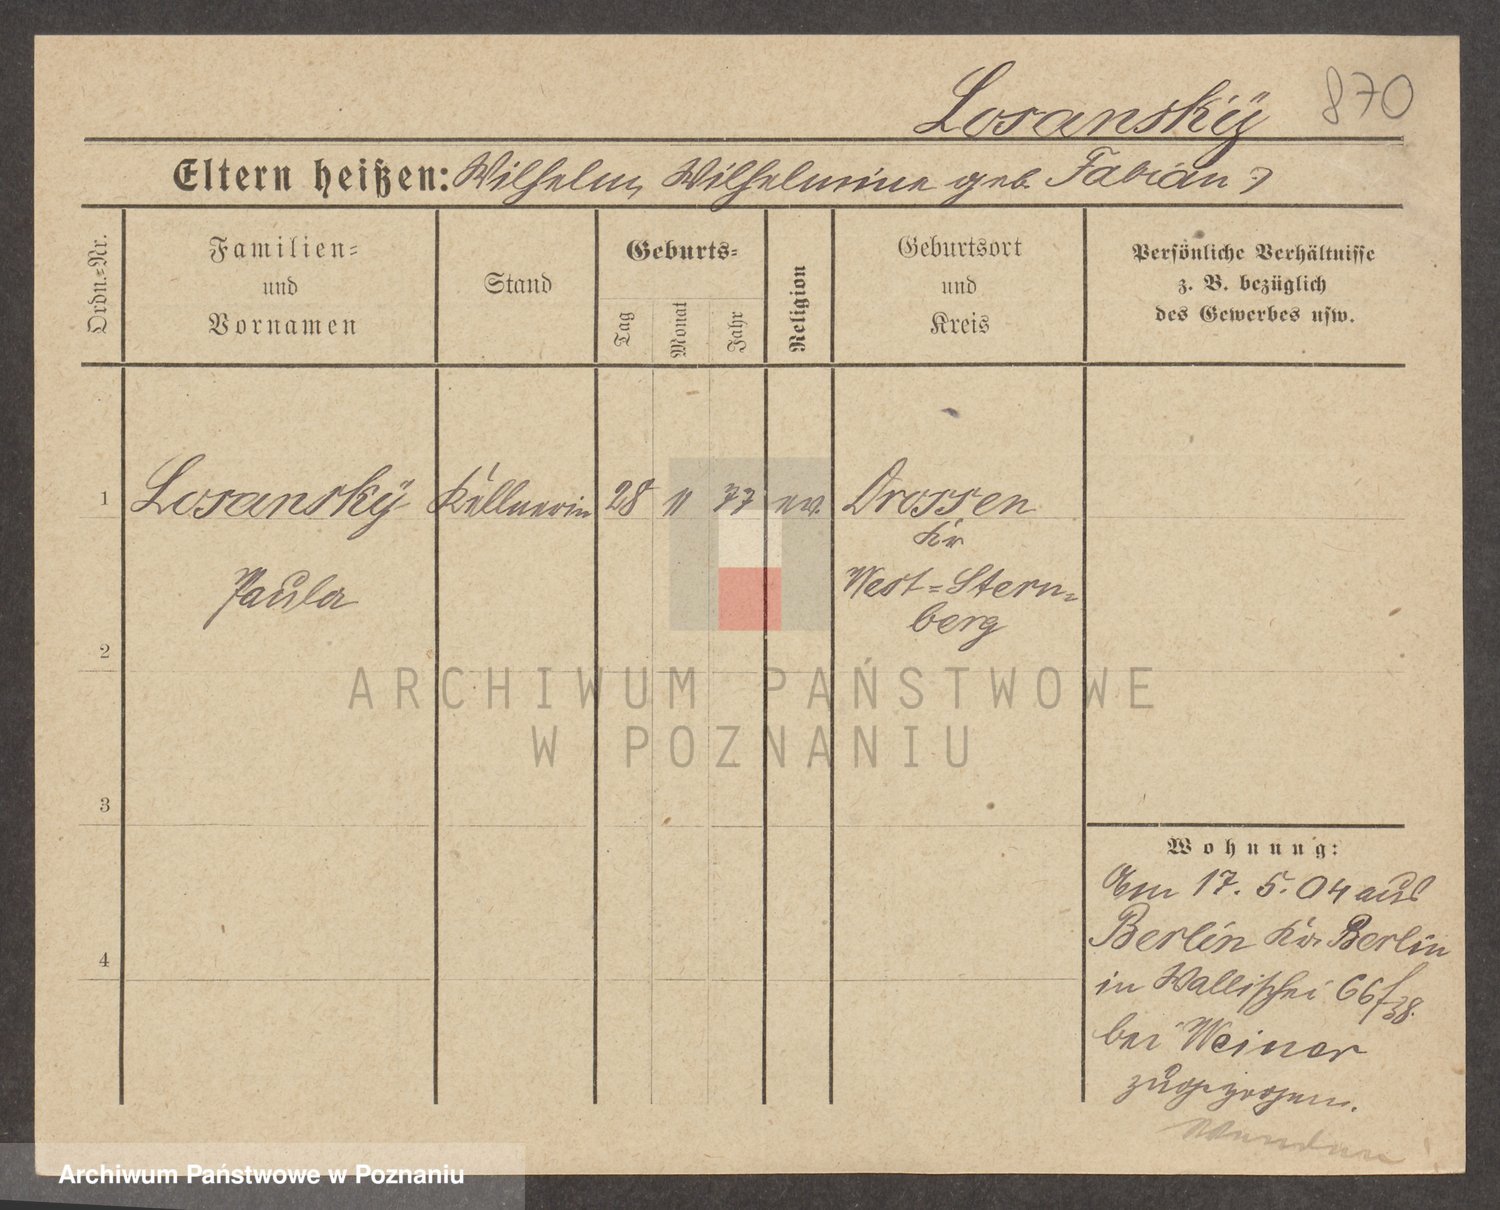 Losanskÿ 870
Eltern heißen: Wilhelm, Wilhelmine geb. Fabian
Ordn.=Nr.
Familien=
und
Vornamen
Stand
Geburts=
Tag
Monat
Jahr
Religion
Geburtsort
und
Kreis
Persönliche Verhältnisse
z. B. bezüglich
des Gewerbes usw.
1 Losanskÿ Kellnerin 28 11 77 ev. Drossen
Kr
Paula West=Stern=
berg
2
3
4
Wohnung:
Am 17. 5. 04 aus
Berlin Kr. Berlin
in Wallischei 66/38.
bei Weiner
zugezogen.
ARCHIWUM PAŃSTWOWE
W POZNANIU
Archiwum Państwowe w Poznaniu